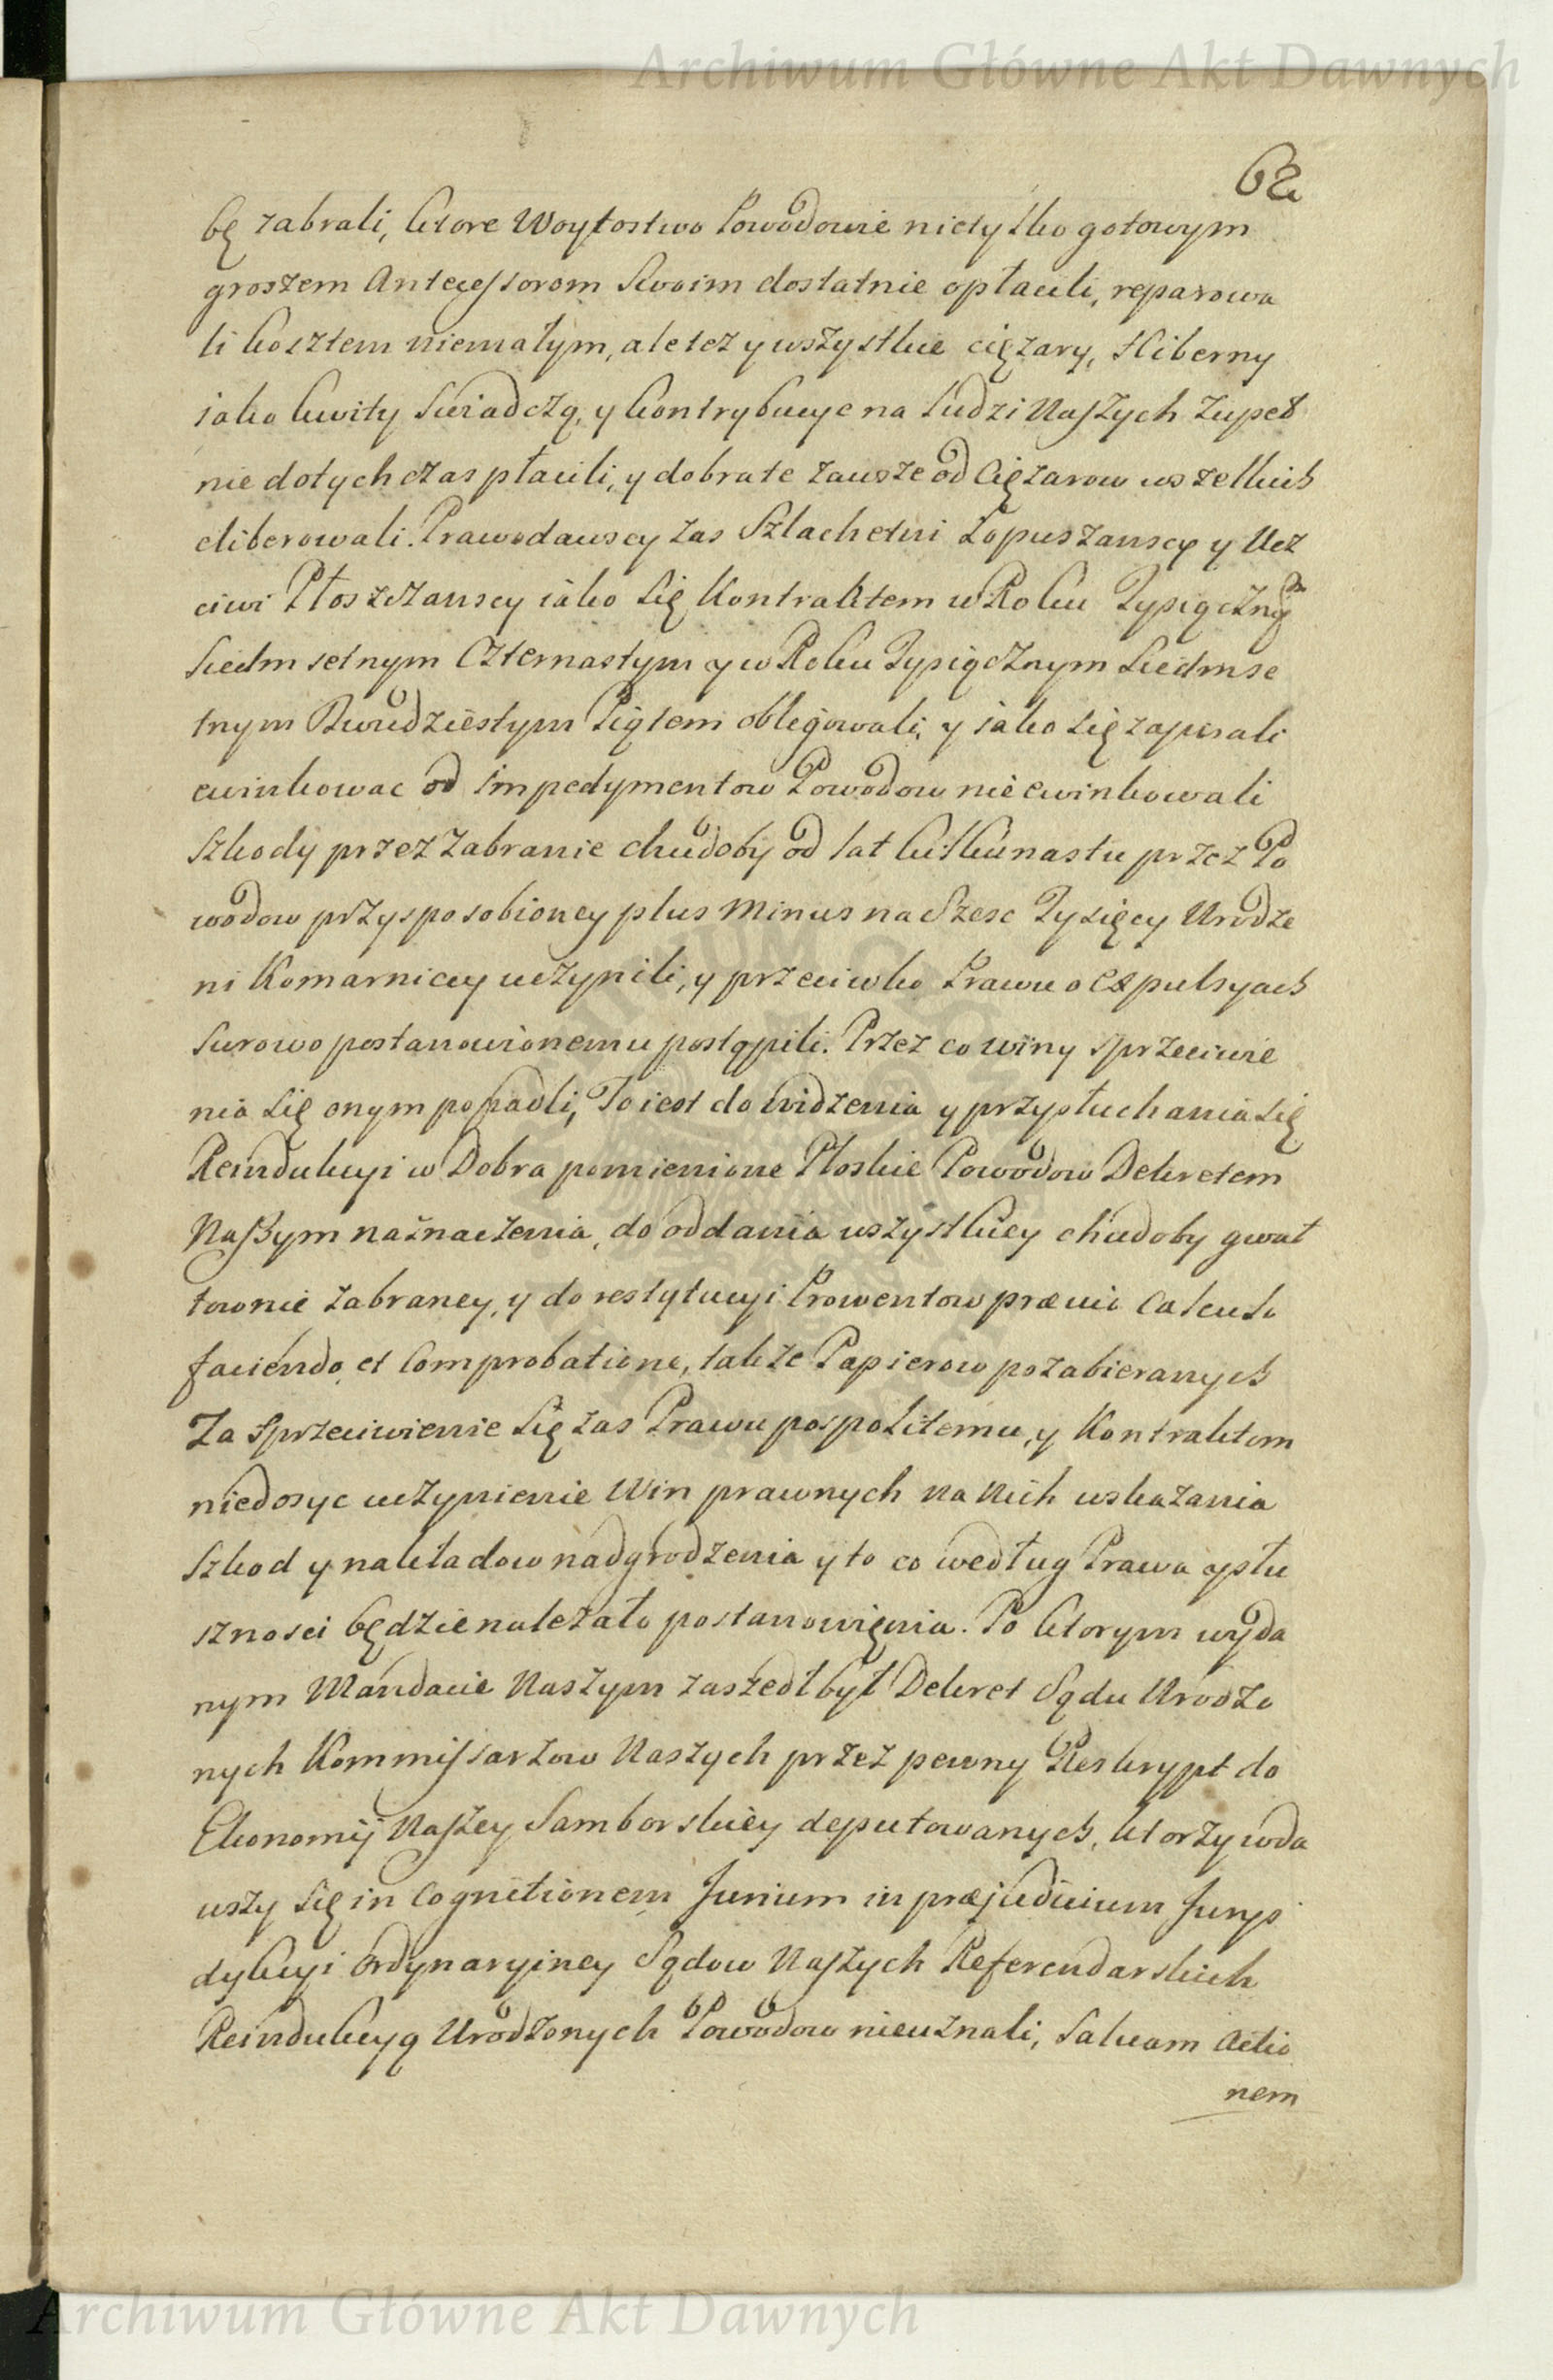 Archiwum Główne Akt Dawnych
62
bę zabrali, ktore Woytostwo Powodowie nietylko gotowym
groszem Antecessorom Swoim dostatnie opłacili, reparowa
li kosztem niemałym, ale tez y wszystkie cięzary, Hiberny
iako kwity Swiadczą, y kontrybucye na Ludzi Naszych zupeł
nie dotychczas płacili, y dobra te zawsze od Cięzarow wszelkich
eliberowali. Prawodawscy zas Szlachetni Łopuszanscy y Ucz
ciwi Płoszczanscy iako Się Kontraktem w Roku Tysiącznym
Siedmsetnym Czternastym y w Roku Tysiącznym Siedmse
tnym Dwudziestym Piątem obligowali, y iako Się zapisali
ewinkowac od impedymentow Powodow nie ewinkowali
Szkody przez zabranie chudoby od lat kilkunastu przez Po
wodow przysposobioney plus minus na Szesc Tysięcy Urodze
ni Komarniccy uczynili, y przeciwko Prawu o expulsyach
Surowo postanowionemu postąpili. Przez co winy sprzeciwie
nia Się onym popadli, To iest do widzenia y przysłuchania Się
Reindukcyi w Dobra pomienione Płoskie Powodow Dekretem
Naszym naznaczenia, do oddania wszystkiey chudoby gwał
townie zabraney, y do restytucyi Prowentow prævio Calculo
faciendo, et Comprobatione, takze Papierow pozabieranych
Za Sprzeciwienie Się zas Prawu pospolitemu, y Kontraktom
niedosyc uczynienie Win prawnych na Nich wskazania
Szkod y nakładow nadgrodzenia y to co według Prawa y słu
sznosci będzie nalezało postanowięnia. Po ktorym wyda
nym Mandacie Naszym zaszedł był Dekret Sądu Urodzo
nych Kommissarzow Naszych przez pewny Reskrypt do
Ekonomij Naszey Samborskiey deputowanych, ktorzy wda
wszy Się in Cognitionem Jurium in præjudicium Jurys
dykcyi Ordynaryiney Sądow Naszych Referendarskich
Reindukcyą Urodzonych Powodow nieuznali, Salvam Actio
nem
Archiwum Główne Akt Dawnych